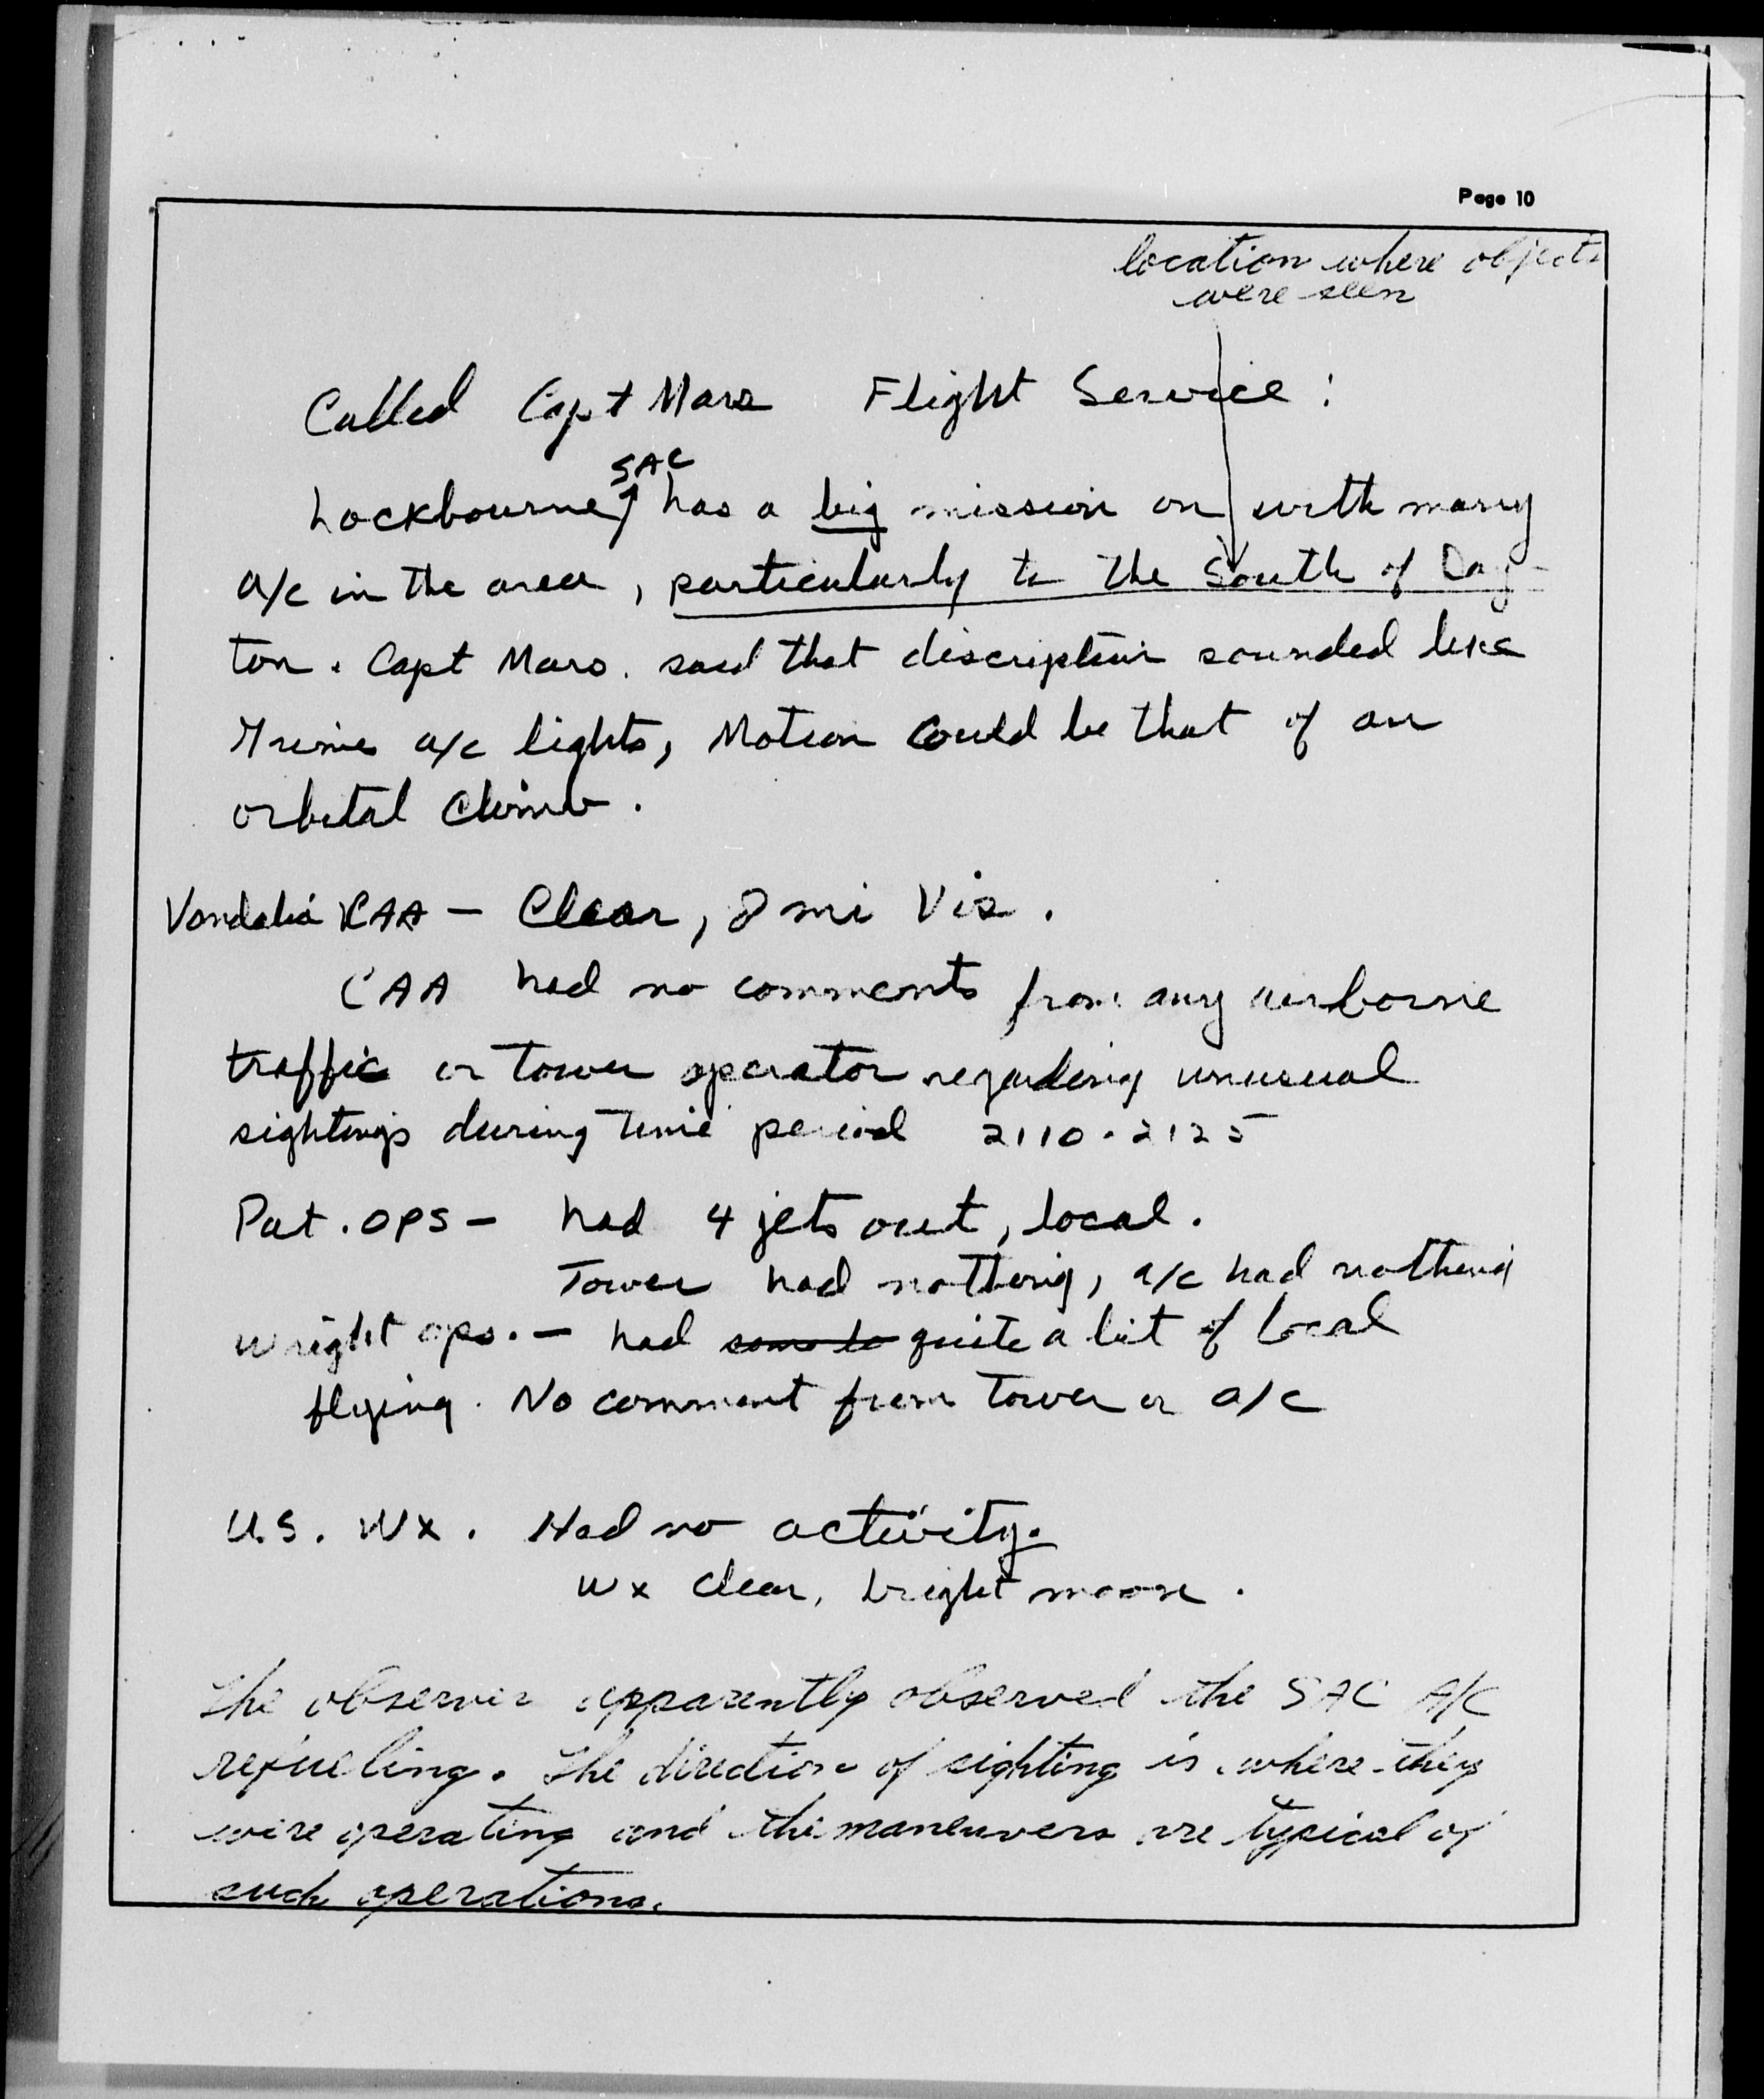 Page 10
location where objects
were seen
Called Capt Mars Flight Service:
SAC
Lockbourne has a big mission on with many
a/c in the area, particularly to the South of Day-
ton. Capt Mars. said that discription sounded like
Grimes a/c lights, Motion could be that of an
orbital climb.
Vandalia CAA - Clear, 8 mi Vis.
CAA had no comments from any airborne
traffic or tower operator regarding unusual
sightings during time period 2110-2125
Pat. OPS - had 4 jets out, local.
Tower had nothing, a/c had nothing
Wright ops. - had some lo quite a bit of local
flying. No comment from tower or a/c
U.S. Wx. Had no activity.
Wx clear, bright moon.
The observer apparently observed the SAC A/C
refueling. The direction of sighting is where they
were operating and the maneuvers are typical of
such operations.